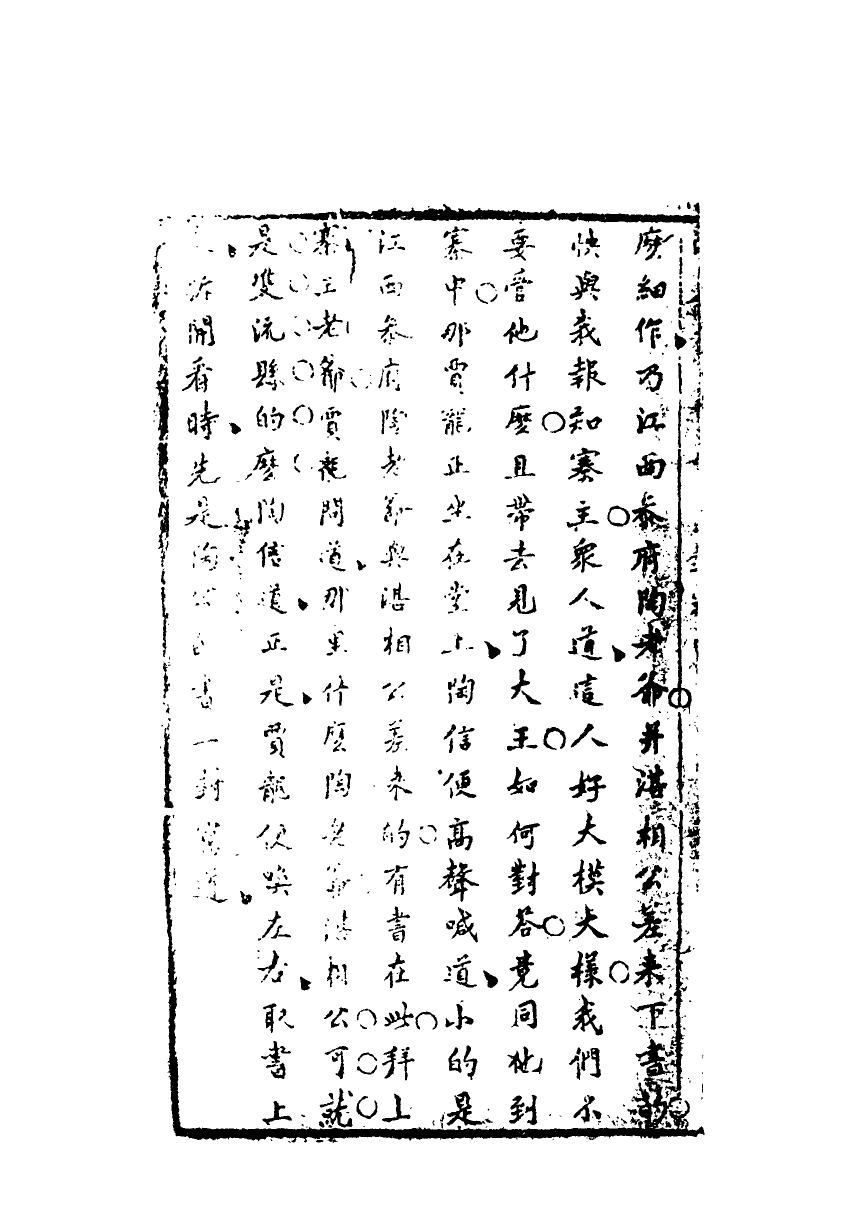 麽細作乃江西叅府陶老爺并湛相公差来下書的
快與我報知寨主衆人道這人好大模大樣我們不
要管他什麽且帶去見了大王如何對答竟同他到
寨中那賈龍正坐在堂上陶信便髙聲喊道小的是
江西叅府陶老爺與湛相公差来的有書在此拜上
寨主老爺賈龍問道那里什麽陶老爺湛相公可就
是雙流縣的麽陶信道正是賈龍便喚左右取書上
拆開看時先是陶公的書一封寫道